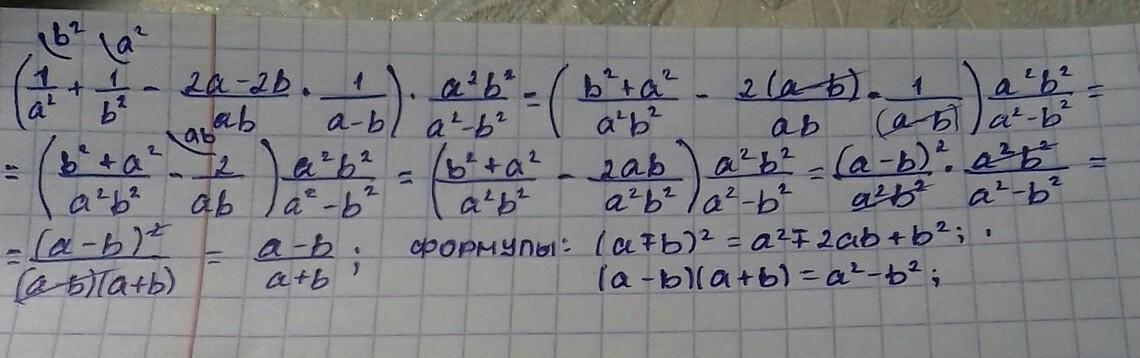 \b² \a²
(1/a² + 1/b² - (2a-2b)/ab · 1/(a-b)) · a²b²/(a²-b²) = ((b²+a²)/a²b² - 2(a-b)/ab · 1/(a-b)) a²b²/(a²-b²) =
\ab
= ((b²+a²)/a²b² - 2/ab) a²b²/(a²-b²) = ((b²+a²)/a²b² - 2ab/a²b²) a²b²/(a²-b²) = (a-b)²/a²b² · a²b²/(a²-b²) =
= (a-b)²/(a-b)(a+b) = (a-b)/(a+b); формулы: (a∓b)² = a²∓2ab+b²; .
(a-b)(a+b) = a²-b²;